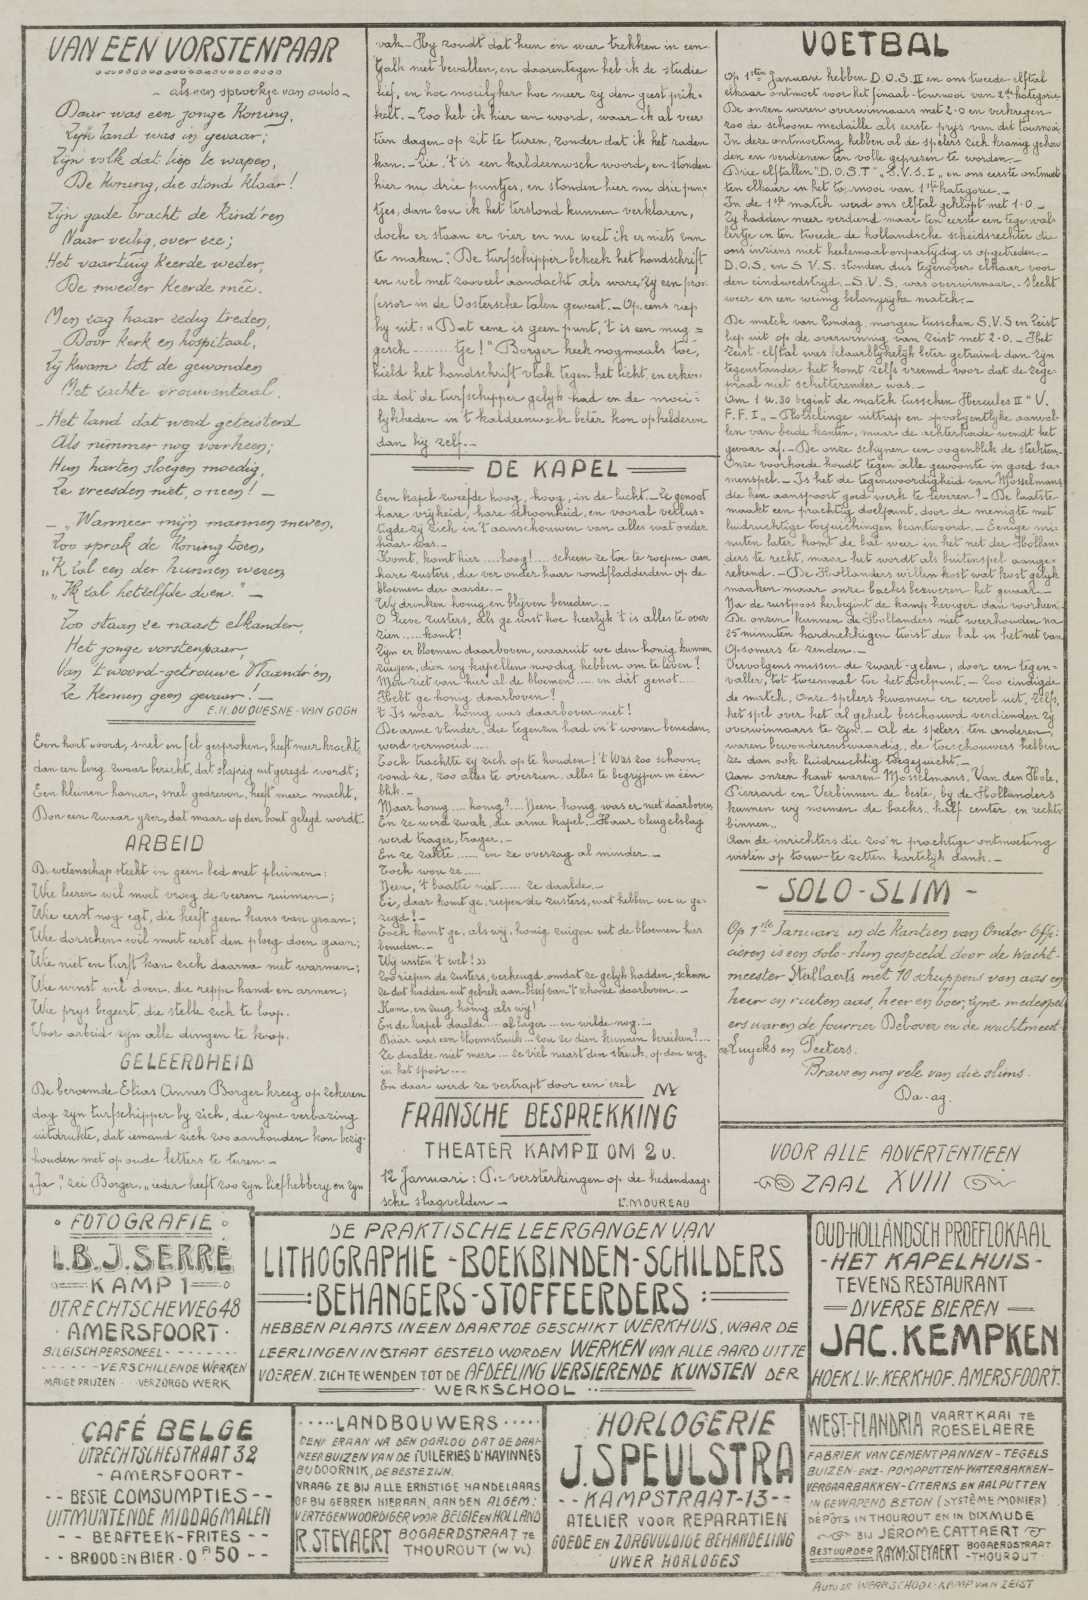 VAN EEN VORSTENPAAR
- als een sprookje van ouds -
Daar was een jonge Koning,
Zijn land was in gevaar;
Zijn volk dat liep te wapen,
De Koning, die stond klaar!
Zijn gade bracht de Kind'ren
Naar veilig, over zee;
Het vaartuig Keerde weder,
De moeder Keerde meê.
Men zag haar zedig treden,
Door Kerk en hospitaal,
Zij Kwam tot de gewonden
Met zachte vrouwentaal.
- Het land dat werd geteisterd
Als nimmer nog voorheen;
Hun harten sloegen moedig,
Ze vreesden niet, o neen! -
- "Wanneer mijn mannen sneven,
Zoo sprak de Koning toen,
"K zal een der hunnen wezen
"Ik zal hetzelfde doen." -
Zoo staan ze naast elkander,
Het jonge vorstenpaar,
Van 't woord-getrouwe Vlaand'ren,
Ze Kennen geen gevaar! -
E.H. DU QUESNE-VAN GOGH
Een kort woord, snel en fel gesproken, heeft meer kracht,
dan een lang zwaar bericht, dat slaprig uit gezegd wordt;
Een kleinen hamer, snel gedreven, heeft meer macht,
Dan een zwaar yzer, dat maar op den bout gelegd wordt.
ARBEID
De wetenschap steekt in geen bed met pluimen:
Wie leeren wil moet vroeg de veeren ruimen;
Wie eerst nog egt, die heeft geen kans van graan;
Wie dorschen wil moet eerst den ploeg doen gaan;
Wie niet en turft kan zich daarna niet warmen;
Wie winst wil doen, die reppe hand en armen;
Wie prys begeert, die stelle zich te loop.
Voor arbeid zyn alle dingen te koop.
GELEERDHEID
De beroemde Elias Annes Borger kreeg op zekeren
dag zyn turfschipper by zich, die zyne verbazing
uitdrukte, dat iemand zich zoo aanhouden kon bezig-
houden met op oude letters te turen. -
"Ja", zei Borger, "ieder heeft zoo zyn liefhebbery en zyn
vak. - Hy zoudt dat heen en weer trekken in een
tjalk niet bevallen, en daarentegen heb ik de studie
lief, en hoe moeilyker hoe meer zy den geest prik-
kelt. - Zoo heb ik hier een woord, waar ik al veer
tien dagen op zit te turen, zonder dat ik het raden
kan. - Zie, 't is een kaldeeuwsch woord, en stonden
hier nu drie puntjes, en stonden hier nu drie pun-
tjes, dan zou ik het terstond kunnen verklaren,
doch er staan er vier en nu weet ik er niets van
te maken". De turfschipper bekeek het handschrift
en wel met zooveel aandacht als ware zy een pro-
fessor in de Oostersche talen geweest. - Op eens riep
hy uit: "Dat eene is geen punt, 't is een mug=
gesch........tje!" Borger keek nogmaals toe,
hield het handschrift vlak tegen het licht, en erken-
de dat de turfschipper gelyk had en de moei-
lykheden in 't kaldeeuwsch beter kon ophelderen
dan hy zelf. -
DE KAPEL
Een kapel zweefde hoog, hoog, in de lucht. - Ze genoot
hare vryheid, hare schoonheid, en vooral verlus-
tigde zy zich in 't aanschouwen van alles wat onder
haar was. -
Komt, komt hier ....hoog!.... scheen ze toe te roepen aan
hare zusters, die ver onder haar rondfladderden op de
bloemen der aarde. -
Wy drinken honig en blyven beneden. -
O lieve zusters, als ge wist hoe heerlyk 't is alles te over
zien ..... komt!
Zyn er bloemen daarboven, waaruit we den honig kunnen
zuigen, dien wy kapellen noodig hebben om te leven?
Men ziet van hier al de bloemen .... en dàt genot....
Hebt ge honig daarboven?
't Is waar, honig was daarboven niet!
De arme vlinder, die tegenzin had in 't wonen beneden,
werd vermoeid ....
Toch trachtte zy zich op te houden! 't Was zoo schoon,
vond ze, zoo alles te overzien, alles te begrypen in één
blik. -
Maar honig .... honig?.... Neen, honig was er niet daarboven.
En ze werd zwak, die arme kapel. Haar vleugelslag
werd trager, trager. -
En ze zakte ...... en ze overzag al minder. -
Toch wou ze .....
Neen, 't baatte niet ..... ze daalde. -
Ei, daar komt ge, riepen de zusters, wat hebben we u ge-
zegd! -
Toch komt ge, als wij, honig zuigen uit de bloemen hier
beneden. -
Wij wisten 't wel!»
Zoo riepen de zusters, verheugd omdat ze gelyk hadden, schoon
ze dat hadden uit gebrek aan besef van 't schoone daarboven. -
Kom, en zug honig als wy!
En de kapel daalde .... al lager .... en wilde nog: -
Daar was een bloemstruik .... zou ze dien kunnen bereiken?....
Ze daalde niet meer ... ze viel naast den struik, op den weg,
in het spoor ....
En daar werd ze vertrapt door een ezel
FRANSCHE BESPREKKING
THEATER KAMP II OM 2 U.
12 Januari: P.: versterkingen op de hedendaag-
sche slagvelden -
Lt. MOUREAU
VOETBAL
Op 1sten Januari hebben D.O.S. II en ons tweede elftal
elkaar ontmoet voor het finaal-tournooi van 2de kategorie
De onzen waren overwinnaars met 2-0 en verkregen
zoo de schoone medaille als eerste prys van dit tournooi
In deze ontmoeting hebben al de spelers zich kranig gehou
den en verdienen ten volle geprezen te worden. -
Drie elftallen "D.O.S I", "S.V.S. I" en ons eerste ontmoet
ten elkaar in het tournooi van 1ste kategorie. -
In de 1ste match werd ons elftal geklopt met 1-0. -
Zy hadden meer verdiend maar ten eerste een tegenval-
lertje en ten tweede de hollandsche scheidsrechter die
ons inziens niet heelemaal onpartydig is opgetreden. -
D.O.S. en S.V.S. stonden dus tegenover elkaar voor
den eindwedstryd. - S.V.S. was overwinnaar. - Slecht
weer en een weinig belangryke match. -
De match van Zondag morgen tusschen S.V.S en Zeist
liep uit op de overwinning van Zeist met 2-0. - Het
Zeist-elftal was klaarblykelyk beter getraind dan zyn
tegenstander het komt zelfs vreemd voor dat de zege-
praal niet schitterender was. -
Om 1 u. 30 begint de match tusschen Hercules II "U.
F.F.I. - Plotselinge uittrap en opvolgentlyke aanval-
len van beide kanten, maar de achterhoede wendt het
gevaar af. - De onze schynen een oogenblik de sterksten.
Onze voorhoede houdt tegen alle gewoonte in goed sa-
menspel. - Is het de tegenwoordigheid van Mosselmans
die hen aanspoort goed werk te leveren? - De laatste
maakt een prachtig doelpunt, door de menigte met
luidruchtige toejuichingen beantwoord. - Eenige mi-
nuten later komt de bal weer in het net der Hollan-
ders te recht, maar het wordt als buitenspel aange-
rekend. - De Hollanders willen kost wat kost gelyk
maaken maar onze backs bezweren het gevaar. -
Na de rustpoos herbegint de kamp heviger dan voorheen.
De onzen kunnen de Hollanders niet weerhouden na
25 minuten hardnekkigen twist den bal in het net van
Opsomers te zenden. -
Vervolgens missen de zwart-gelen, door een tegen-
valler, tot tweemaal toe het doelpunt. - Zoo eindigde
de match, onze spelers kwamen er eervol uit, zelfs,
het spel over het al geheel beschouwd verdienden zy
overwinnaars te zyn. - Al de spelers, ten anderen,
waren bewonderenswaardig, de toeschouwers hebben
ze dan ook luidruchtig toegejuicht. -
Aan onzen kant waren Mosselmans, Van den Hole,
Pierrard en Verbinnen de beste, by de Hollanders
kunnen wy noemen de backs, half center, en rechts
binnen.
Aan de inrichters die zoo'n prachtige ontmoeting
wisten op touw te zetten hartelyk dank. -
- SOLO-SLIM -
Op 1ste Januari in de Kantien van Onder-Offi-
cieren is een solo-slim gespeeld door de Wacht-
meester Stallaerts met 10 schuppens van aas en
heer en ruiten aas, heer en boer; zyne medespel
ers waren de fourrier Delover en de wachtmeest-
ers Luyckx en Peeters.
Bravo en nog vele van die slims.
Da-ag.
VOOR ALLE ADVERTENTIEEN
ZAAL XVIII
FOTOGRAFIE
L.B.J. SERRÉ
KAMP 1
UTRECHTSCHEWEG 48
AMERSFOORT
BELGISCH PERSONEEL
VERSCHILLENDE WERKEN
MATIGE PRIJZEN VERZORGD WERK
DE PRAKTISCHE LEERGANGEN VAN
LITHOGRAPHIE - BOEKBINDEN - SCHILDERS
BEHANGERS - STOFFEERDERS
HEBBEN PLAATS IN EEN DAARTOE GESCHIKT WERKHUIS, WAAR DE
LEERLINGEN IN STAAT GESTELD WORDEN WERKEN VAN ALLE AARD UIT TE
VOEREN. ZICH TE WENDEN TOT DE AFDEELING VERSIERENDE KUNSTEN DER
WERKSCHOOL
OUD-HOLLANDSCH PROEFLOKAAL
- HET KAPELHUIS -
TEVENS RESTAURANT
DIVERSE BIEREN
JAC. KEMPKEN
HOEK L.Vr. KERKHOF. AMERSFOORT.
CAFÉ BELGE
UTRECHTSCHESTRAAT 32
- AMERSFOORT -
- - BESTE COMSUMPTIES - -
UITMUNTENDE MIDDAGMALEN
- - BEAFTEEK-FRITES - -
- - BROOD EN BIER - 0 Fl 50 - -
LANDBOUWERS
DENK ERAAN NA DEN OORLOG DAT DE DRAI-
NEERBUIZEN VAN DE TUILERIES D'HAVINNES
BIJ DOORNIK, DE BESTE ZIJN.
VRAAG ZE BIJ ALLE ERNSTIGE HANDELAARS
OF BIJ GEBREK HIERAAN, AAN DEN ALGEM:
VERTEGENWOORDIGER VOOR BELGIE EN HOLLAND
R. STEYAERT BOGAERDSTRAAT TE
THOUROUT (W.VL)
HORLOGERIE
J. SPEULSTRA
- - KAMPSTRAAT-13 - -
ATELIER VOOR REPARATIEN
GOEDE EN ZORGVULDIGE BEHANDELING
UWER HORLOGES
WEST-FLANDRIA VAARTKAAI TE
ROESELAERE
FABRIEK VAN CEMENTPANNEN - TEGELS
BUIZEN - ENZ - POMPPUTTEN - WATERBAKKEN -
VERGAARBAKKEN - CITERNS EN AALPUTTEN
IN GEWAPEND BETON (SYSTÈME MONIER)
DEPÔTS IN THOUROUT EN IN DIXMUDE
BIJ JÉROME CATTAERT
BESTUURDER RAYM: STEYAERT BOGAERDSTRAAT
- THOUROUT -
AUTO DR WERKSCHOOL-KAMP VAN ZEIST